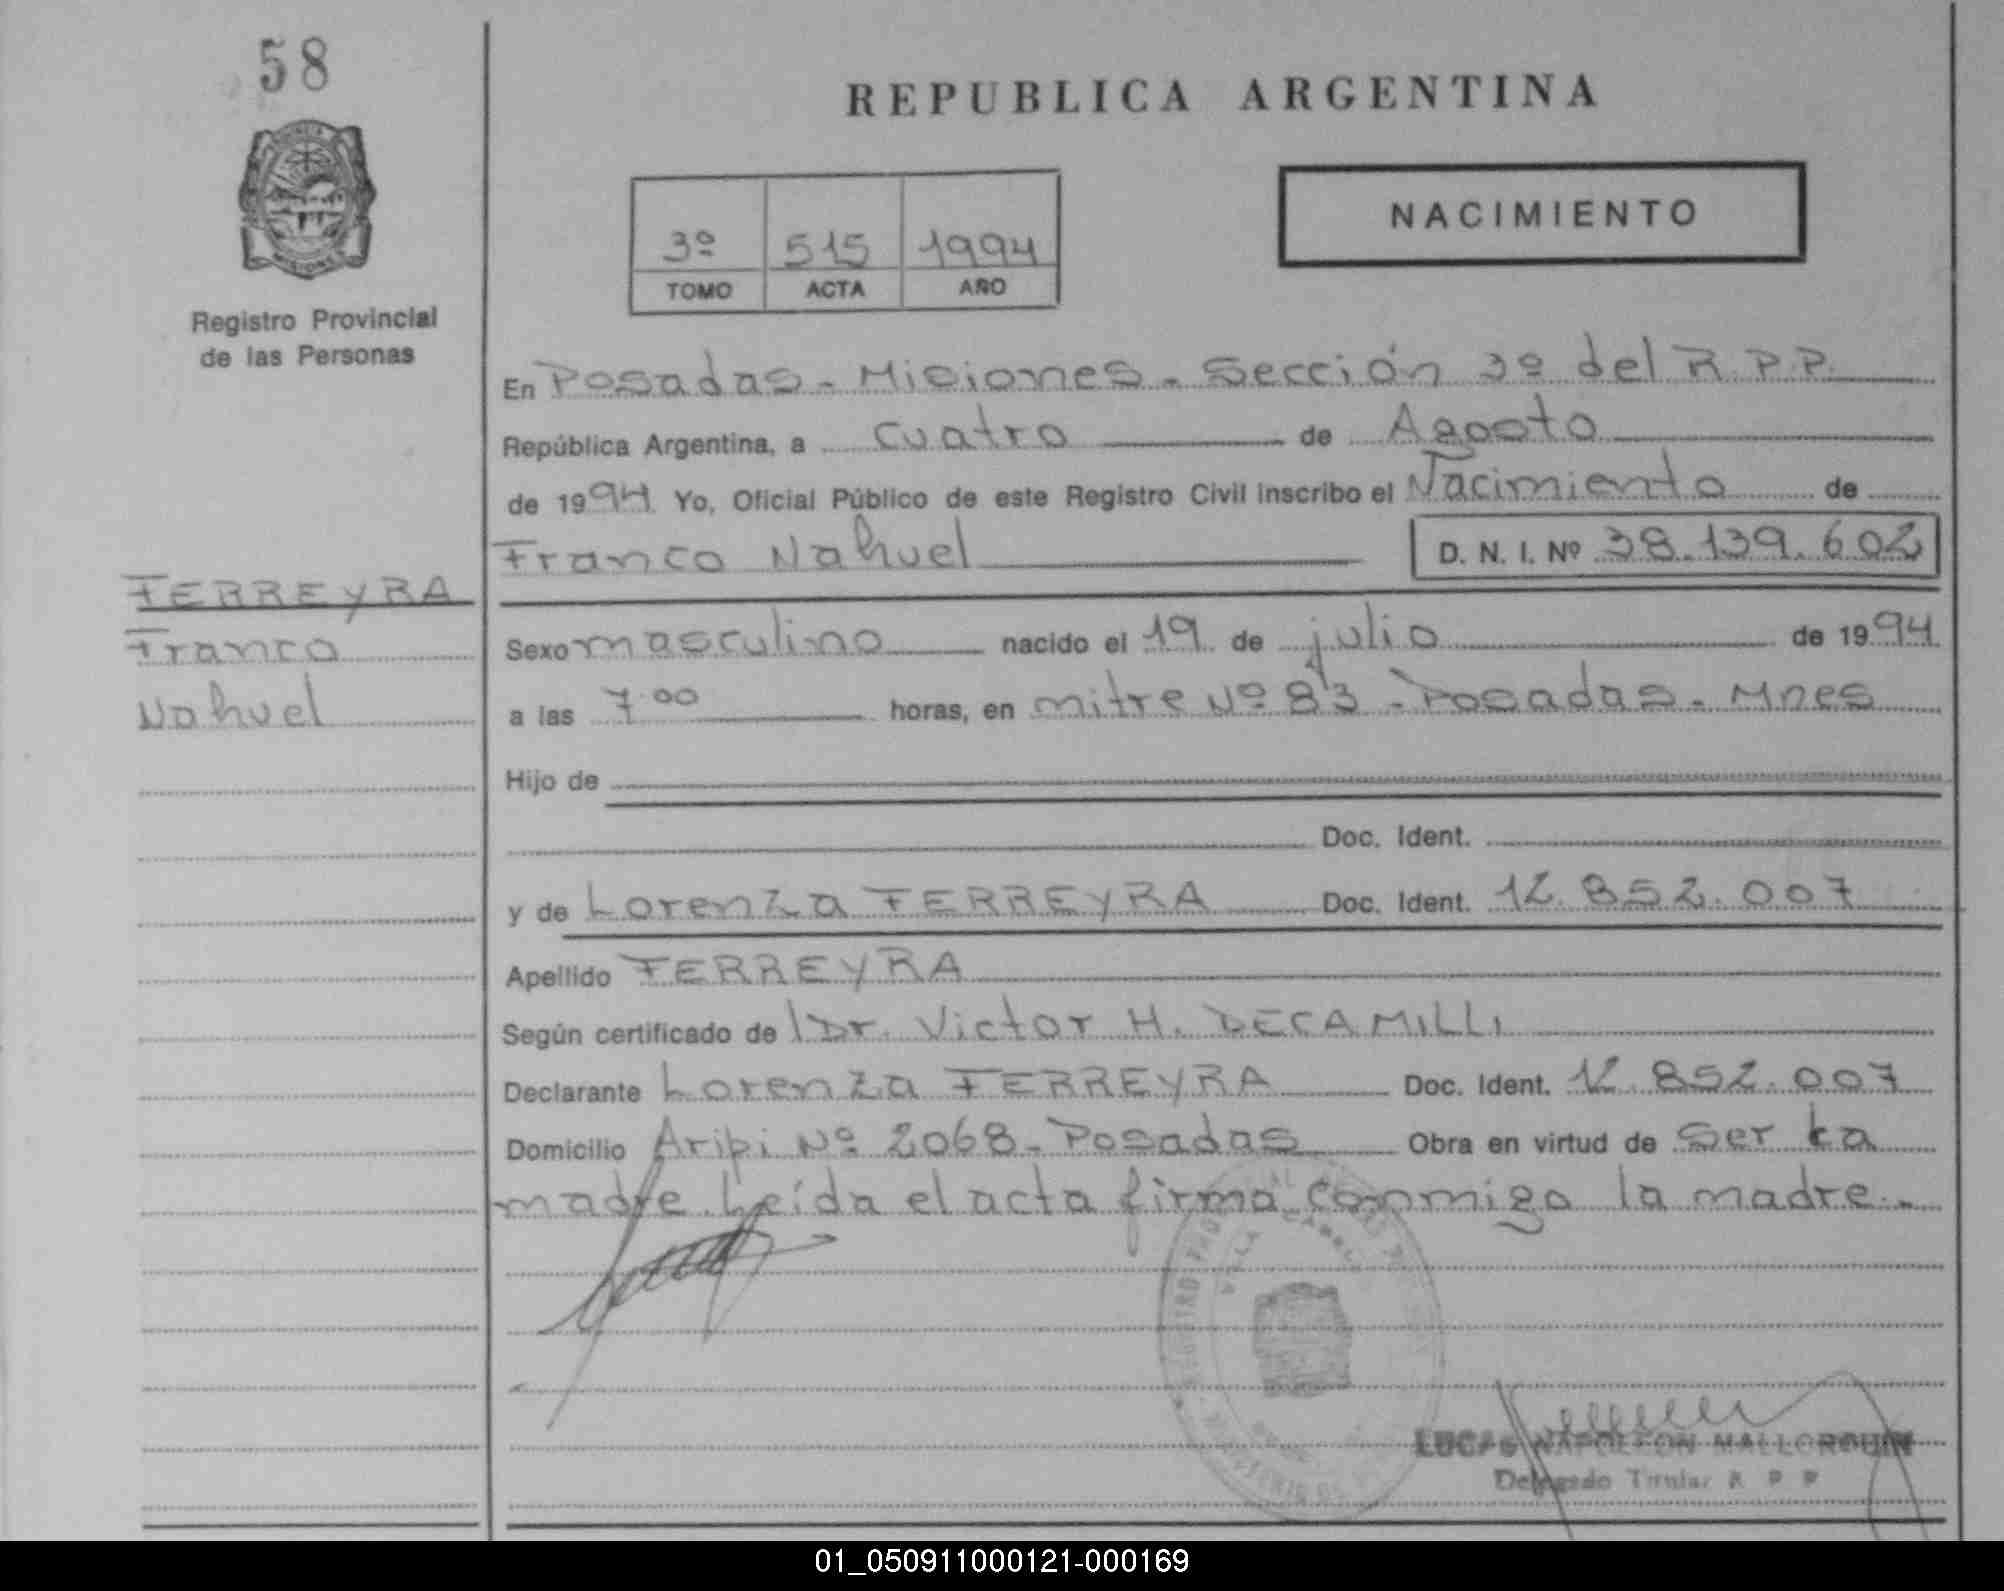 58
REPUBLICA ARGENTINA
NACIMIENTO
3º 515 1994
TOMO ACTA AÑO
MISIONES
Registro Provincial
de las Personas
En Posadas - Misiones - Sección 3º del R.P.P.
República Argentina, a cuatro de Agosto
de 1994 Yo, Oficial Público de este Registro Civil inscribo el Nacimiento de
Franco Nahuel D. N. I. Nº 38.139.602
FERREYRA
Franco
Nahuel
Sexo masculino nacido el 19 de julio de 1994
a las 7 00 horas, en mitre Nº 83 - Posadas - Mnes
Hijo de
Doc. Ident.
y de Lorenza FERREYRA Doc. Ident. 12.852.007
Apellido FERREYRA
Según certificado de l Dr. Victor H. DECAMILLI
Declarante Lorenza FERREYRA Doc. Ident. 12.852.007
Domicilio Aripi Nº 2068 - Posadas Obra en virtud de ser la
madre. Leída el acta firma conmigo la madre.-
LUCAS NAPOLEON MALLORQUIN
Delegado Titular R P P
01_050911000121-000169